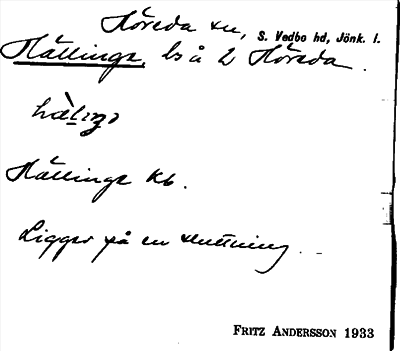 Höreda sn, S. Vedbo hd, Jönk. l.
Hällinge, bs å 2 Höreda.
Hällinge Kb.
Ligger på en sluttning.
FRITZ ANDERSSON 1933